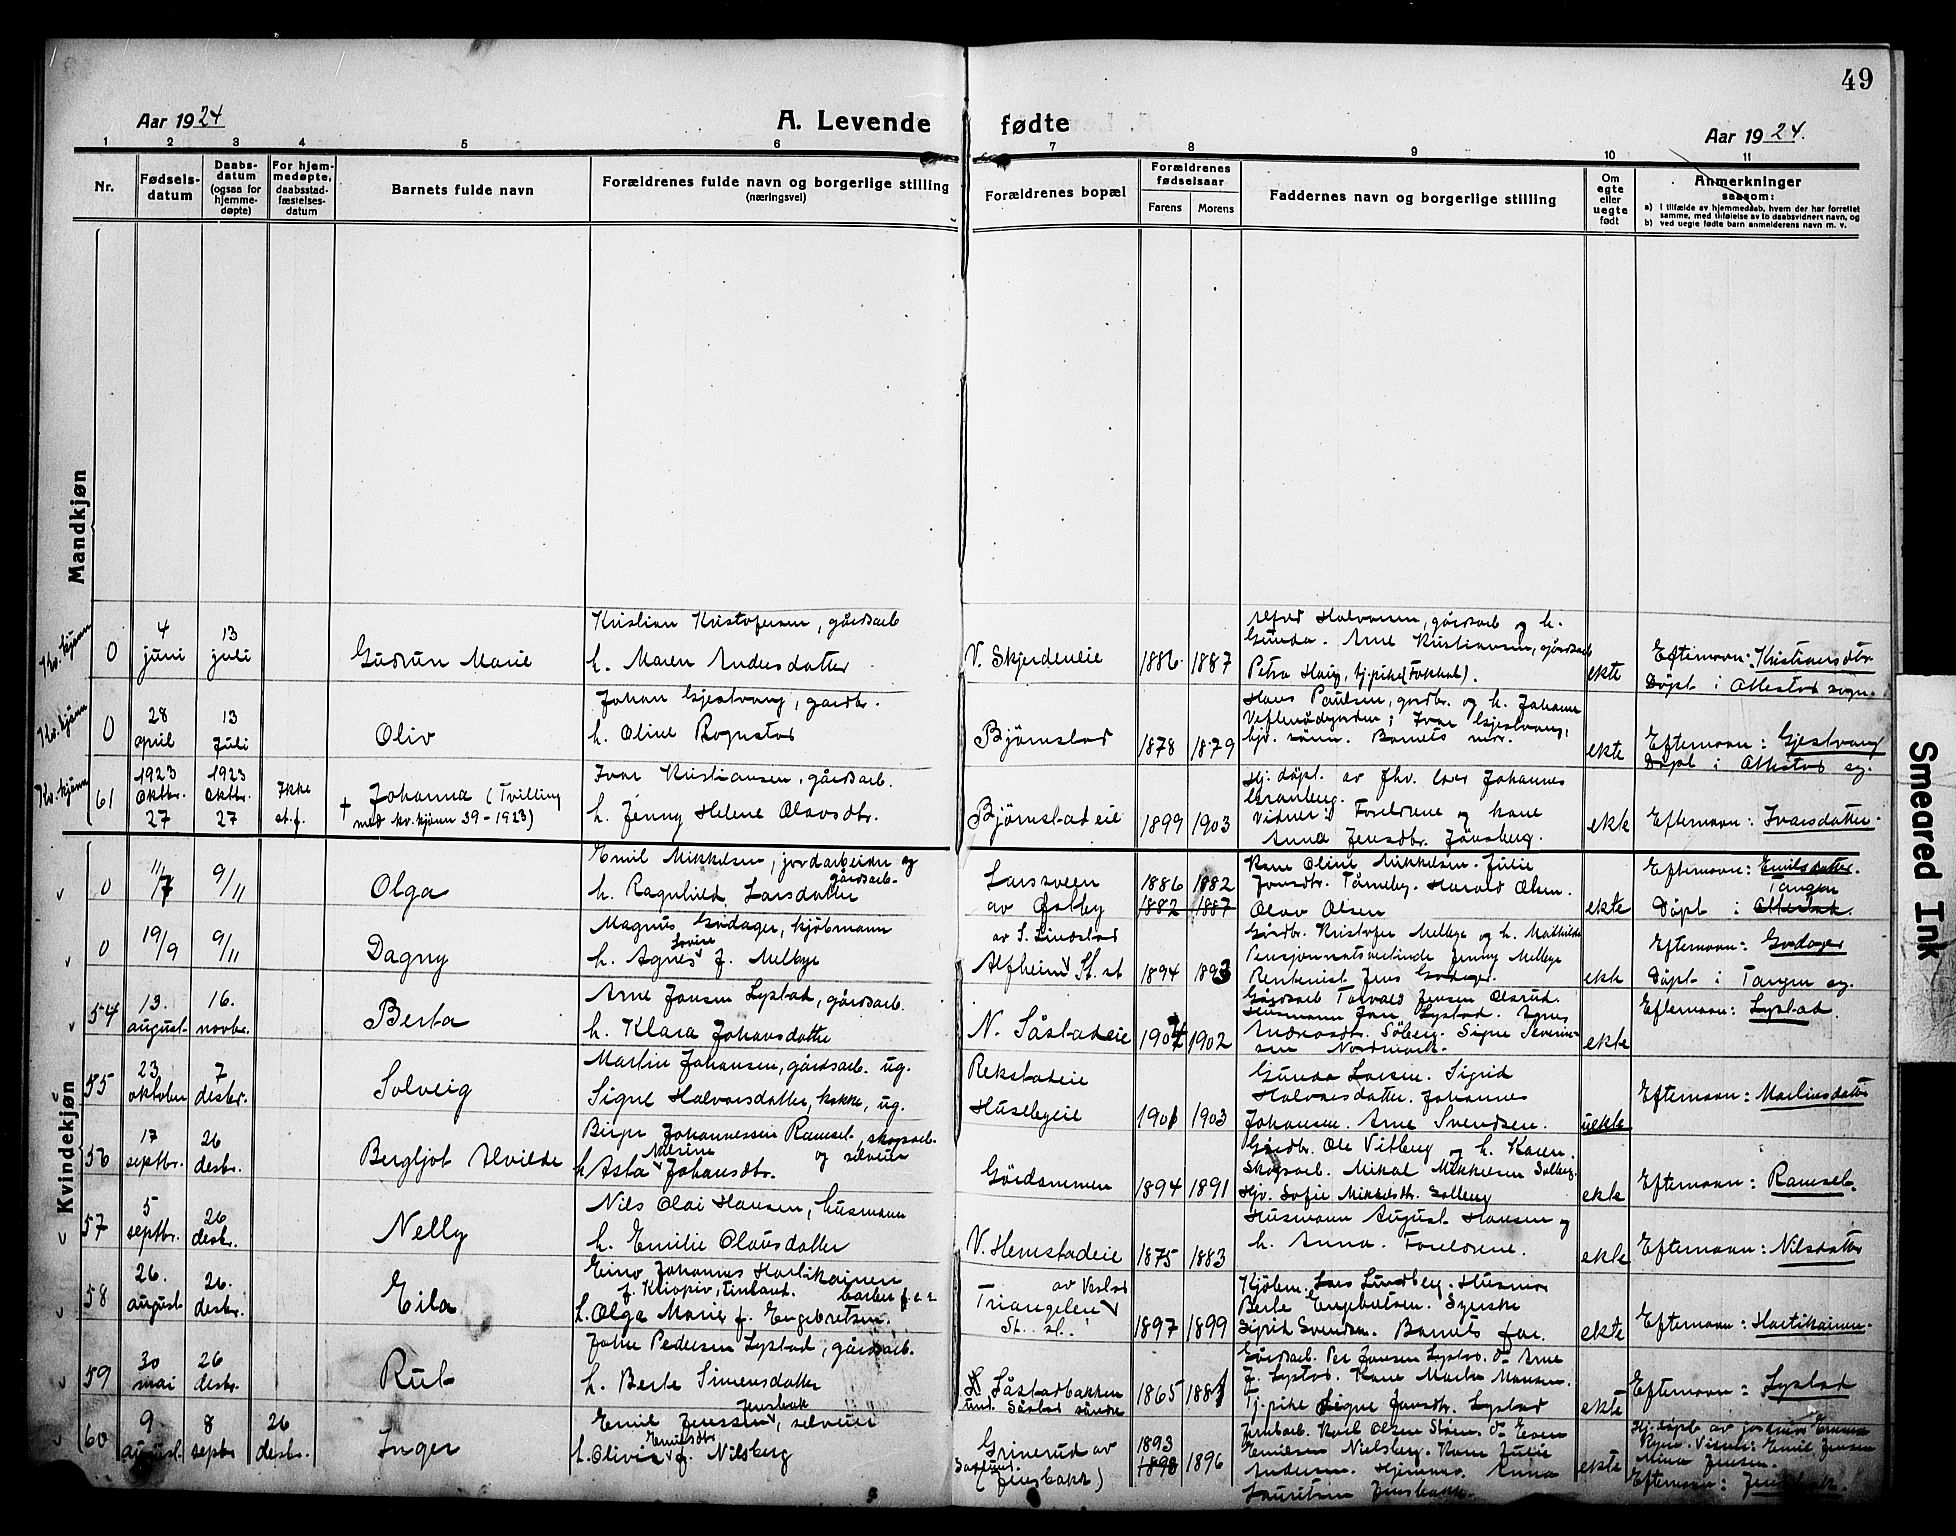 49
Aar 1924
A. Levende fødte
Aar 1924.
1 2 3 4 5 6 7 8 9 10 11
Nr.
Fødsels-
datum
Daabs-
datum
(ogsaa for
hjemme-
døpte)
For hjem-
medøpte,
daabsstad-
fæstelses-
datum
Barnets fulde navn
Forældrenes fulde navn og borgerlige stilling
(næringsvei)
Forældrenes bopæl
Forældrenes
fødselsaar
Farens Morens
Faddernes navn og borgerlige stilling
Om
egte
eller
uegte
født
Anmerkninger
saasom:
a) I tilfælde av hjemmedaab, hvem der har forrettet
samme, med tilføielse av to daabsvidners navn, og
b) ved uegte fødte barn anmelderens navn m. v.
Mandkjøn
Kv. kjønn
0
4
juni
13
juli
Gudrun Marie
Kristian Kristofersen, gårdsarb
h. Maren Andersdatter
V. Skjerdeneie
1886 1887
Alfred Halvorsen, gårdsarb og h.
Gunda. Arne Kristiansen, gårdsarb
Petra Haug, tj.pike
ekte
Efternavn: Kristiansdtr
Døpt i Ottestad sogn.
Kv. kjønn
0
28
april
13
juli
Oliv
Johan Gjestvang, gardbr.
h. Oline Rognstad
Bjørnstad
1878 1879
Hans Paulsen, gardbr. og h. Johanne
Ivar Gjestvang,
Barnets mor.
ekte
Efternavn: Gjestvang
Døpt i Ottestad sg.
Kv. kjønn
61
1923
Oktbr.
27
1923
Oktbr.
27
Ikke
st.f.
+ Johanna (Tvilling
med kv. kjønn 39-1923)
Ivar Kristiansen, gårdsarb.
h. Jenny Helene Olavsdtr.
Bjørnstadeie
1899 1903
Hj. døpt av Johannes
Granberg.
Vidner: Foreldrene og kone
Anna Jensdtr. Jønsberg.
ekte
Efternavn: Ivarsdatter.
Kvindekjøn
0
11/7
9/11
Olga
Emil Mikkelsen, jordarbeider og
gårdsarb.
h. Ragnhild Larsdatter
Larssveen
av Østby
1886 1882
1882 1887
Kone Oline Mikkelsen. Julie
Harald Olsen.
Olav Olsen
ekte
Efternavn: Emilsdatter.
Tangen
Døpt i Ottestad.
0
19/9
9/11
Dagny
Magnus Godager, kjøbmann
Lovise
h. Agnes f. Melbye
av S. Lindstad
Alfheim St. st
1894 1893
Gårdbr. Kristofer Melbye og h. Mathilde
Jenny Melbye
Rentenist Jens Godager.
ekte
Efternavn: Godager
Døpt i Tangen sg.
54
13.
august
16.
novbr.
Berta
Arne Jensen Lystad, gårdsarb.
h. Klara Johansdatter
N. Såstadeie
1902
Gårdsarb Torvald Jensen Olsrud.
Husmann Jens Lystad. Agnes
Søberg. Signe Severin-
sen Nordmark.
ekte
Efternavn: Lystad.
55
23
oktober
7
desbr.
Solveig
Martin Johansen, gårdsarb. ug.
Signe Halvorsdatter, kokke, ug.
Rekstadeie
Husebyeie
1901 1903
Gunda Larsen. Sigrid
Halvorsdatter. Johannes
Johansen. Arne Svendsen.
uekte
Efternavn: Martinsdatter
56
17
septbr.
26
desbr.
Bergljot Alvilde
Birger Johannessen Ramset, skogsarb.
og
h Asta Johansdtr.
Gårdsmoen
1894 1891
Gårdbr. Ole Vitberg og h. Karen.
Skogsarb. Mikal Mikkelsen Solberg.
Hjv. Sofie Mikkelsdtr. Solberg
ekte
Efternavn: Ramset.
57
5
septbr.
26
desbr.
Nelly
Nils Olai Hansen, husmann
h. Emilie Olausdatter
V. Hemstadeie
1875 1883
Husmann August Hansen og
h. Anna. Foreldrene.
ekte
Efternavn: Nilsdatter
58
26.
august
26.
desbr.
Eila
Eino Johannes Hartikainen
Finland.
h. Olga Marie f. Engebretsen.
av Vestad
Triangelen
St. st.
1897 1899
Kjøbm. Lars Lundberg. Husmor
Berte Engebretsen. Syerske
Sigrid Svendsen. Barnets far.
ekte
Efternavn: Hartikainen
59
30
mai
26
desbr.
Rut
Johan Pedersen Lystad, gårdsarb.
h. Berte Simensdatter
Såstadbakken
und. Såstad søndre
1865
Gårdsarb. Per Jensen Lystad. Do Arne
J. Lystad. Kone Marte Hansen.
Tj.pike Signe Jensdtr. Lystad
ekte
Efternavn: Lystad
60
9
august
8
septbr
26
desbr.
Inger
Jensbakk
Emil Jenssen, selveier
Emilsdtr
h. Olivia f. Nilsberg
Grinerud av
(Jensbakk)
1893
1898 1896
Karl Olsen Do Even
Emilsen Nielsberg. Kone Julie
Andersen. Hjemmev. Anna
Lauritsen Jensbakk.
ekte
Hj. døpt av jordmor Emma
Emil Jensen
Mina Jensen.
Efternavn: Jensbakk.
Smeared Ink